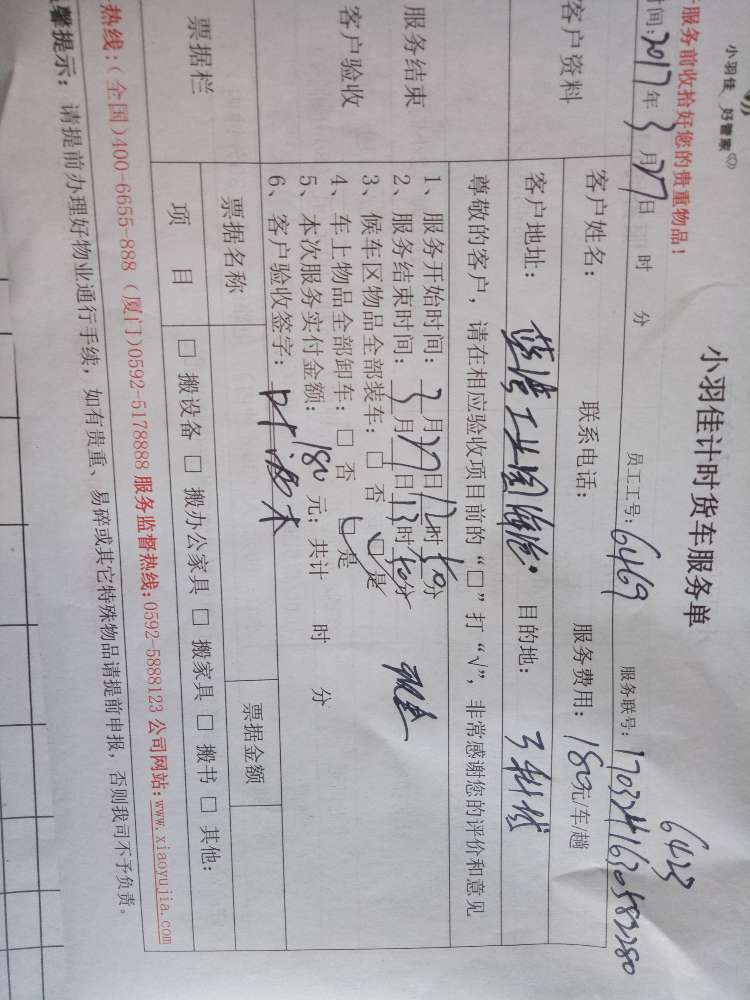 小羽佳 好管家
小羽佳计时货车服务单
6423
服务前收拾好您的贵重物品！
员工工号：6469 服务联号：1703241630582280
时间：2017年3月27日 时 分
客户资料
客户姓名： 联系电话： 服务费用：180元/车趟
客户地址： 工业园 目的地：
尊敬的客户，请在相应验收项目前的“□”打“√”，非常感谢您的评价和意见
服务结束
客户验收
1、服务开始时间：3月27日12时10分
2、服务结束时间：3月27日13时10分 现金
3、候车区物品全部装车：□ 否 □ 是
4、车上物品全部卸车：□ 否 □ 是
5、本次服务实付金额：180元；共计 时 分
6、客户验收签字：
票据栏
票据名称 票据金额
项 目 □ 搬设备 □ 搬办公家具 □ 搬家具 □ 搬书 □ 其他：
热线：(全国)400-6655-888 (厦门)0592-5178888 服务监督热线：0592-5888123 公司网站：www.xiaoyujia.com
馨提示：请提前办理好物业通行手续，如有贵重、易碎或其它特殊物品请提前申报，否则我司不予负责。